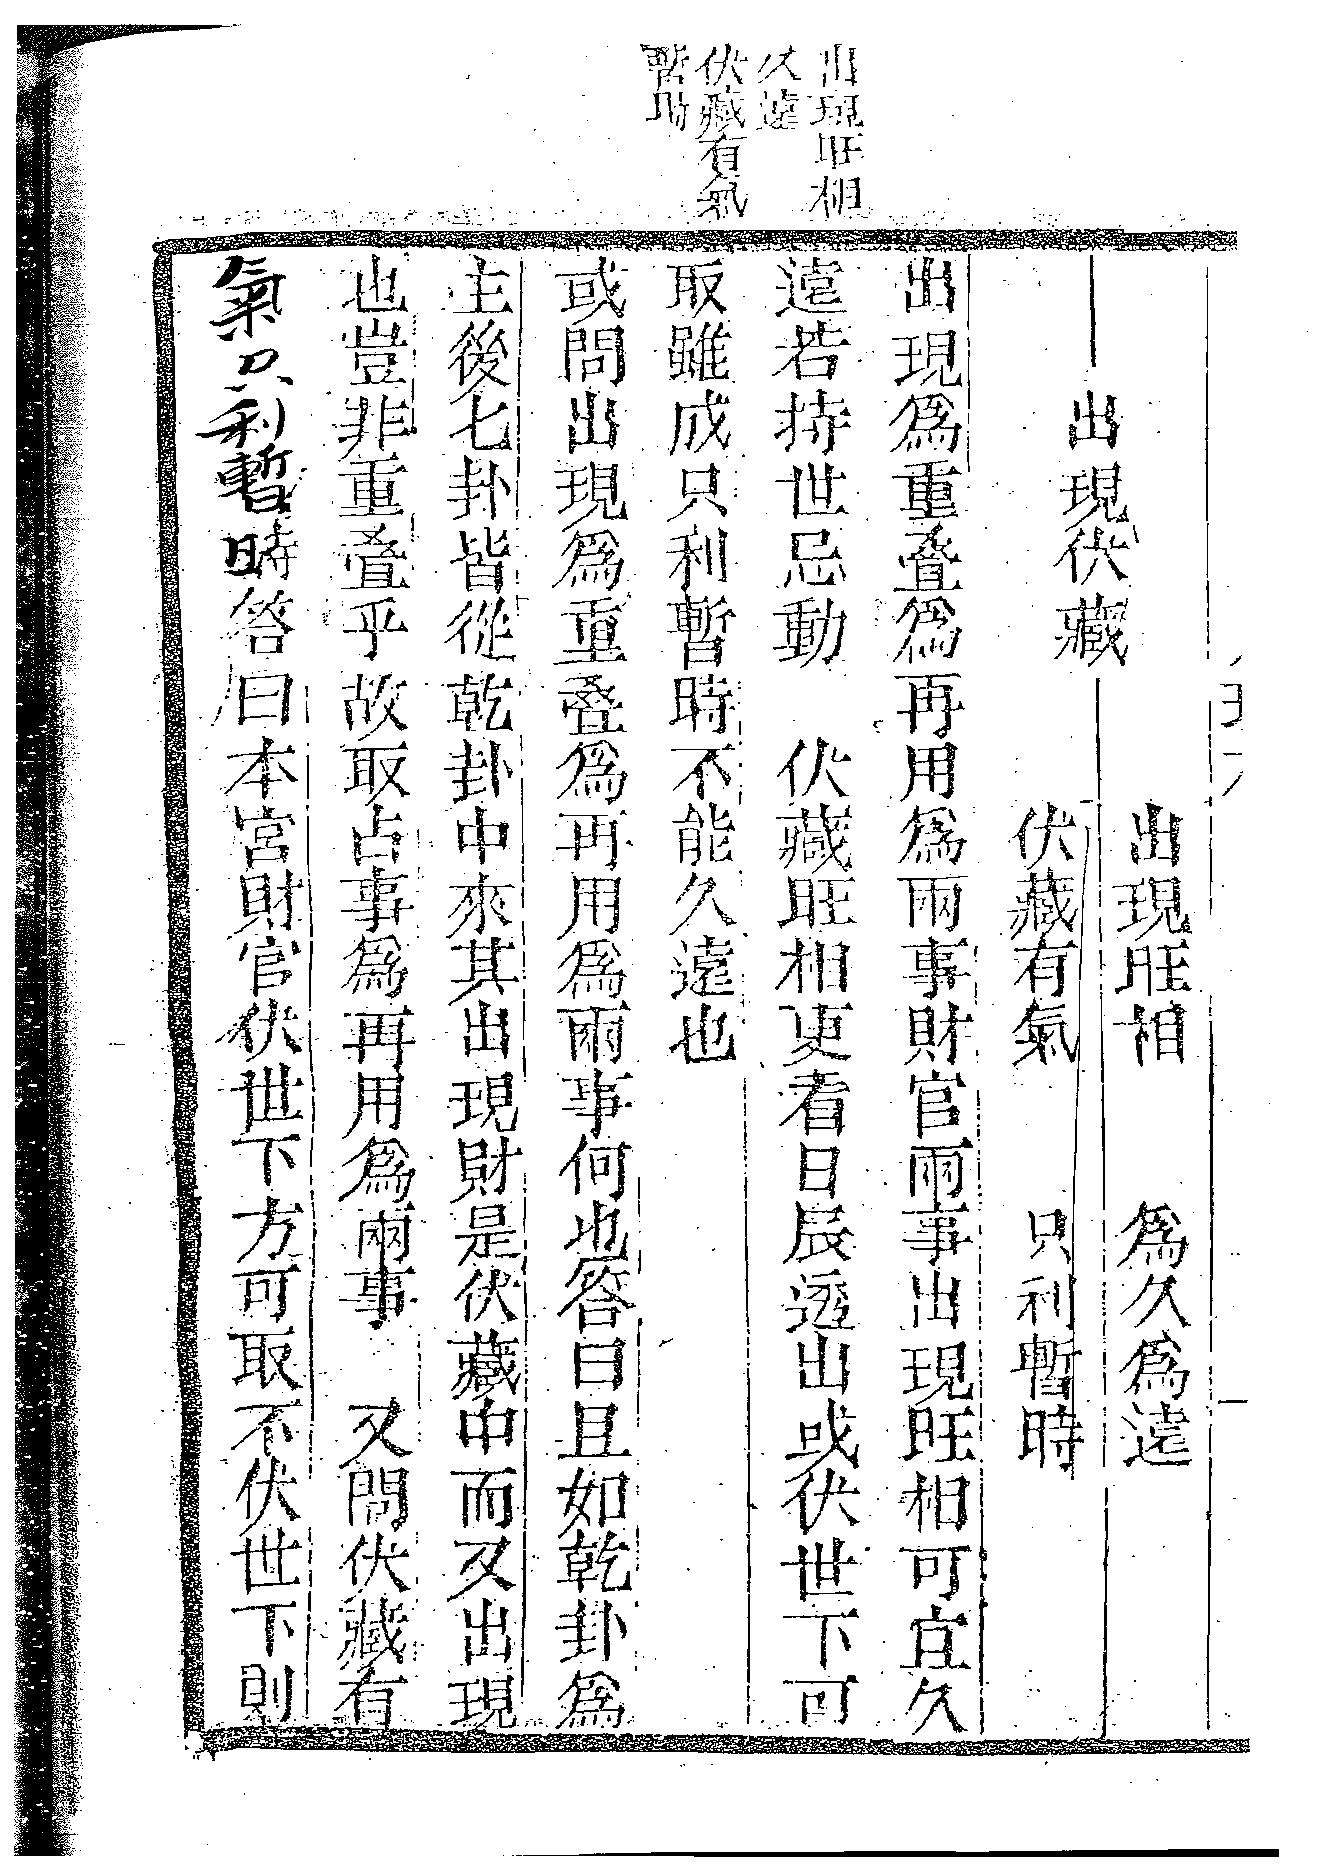 出現旺相
久遠
伏藏有氣
暫時
出現伏藏
出現旺相　爲久爲遠
伏藏有氣　只利暫時
出現爲重叠爲再用爲兩事財官兩事出現旺相可宜久
遠若持世忌動　伏藏旺相更看日辰透出或伏世下可
取雖成只利暫時不能久遠也
或問出現爲重叠爲再用爲兩事何也答曰且如乾卦爲
主後七卦皆從乾卦中來其出現財是伏藏中而又出現
也豈非重叠乎故取占事爲再用爲兩事　又問伏藏有
氣只利暫時答曰本宮財官伏世下方可取不伏世下則